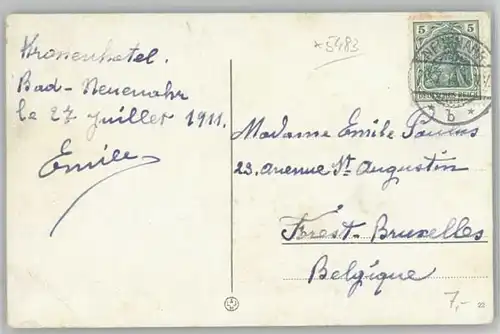 Kronenhotel.
Bad-Neuenahr
le 27 Juillet 1911.
Emile
*5483
5 5
DEUTSCHES REICH
* b *
Madame Emile Paulus
23. avenue St Augustin
Forest-Bruxelles
Belgique
7,-